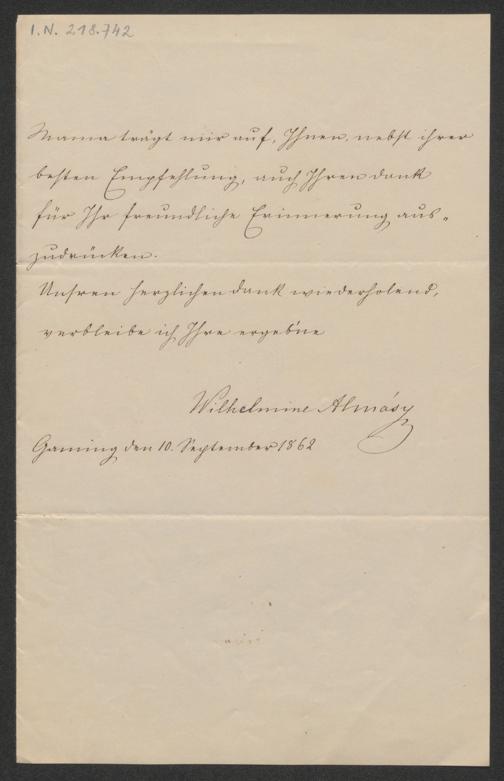 I.N. 218.742
Mama trägt mir auf, Ihnen, nebst ihrer
besten Empfehlung, auch Ihren Dank
für Ihr freundliche Erinnerung aus„
zudrücken.
Unsren herzlichen Dank wiederholend,
verbleibe ich Ihre ergebne
Wilhelmine Almásy
Gaming den 10. September 1862